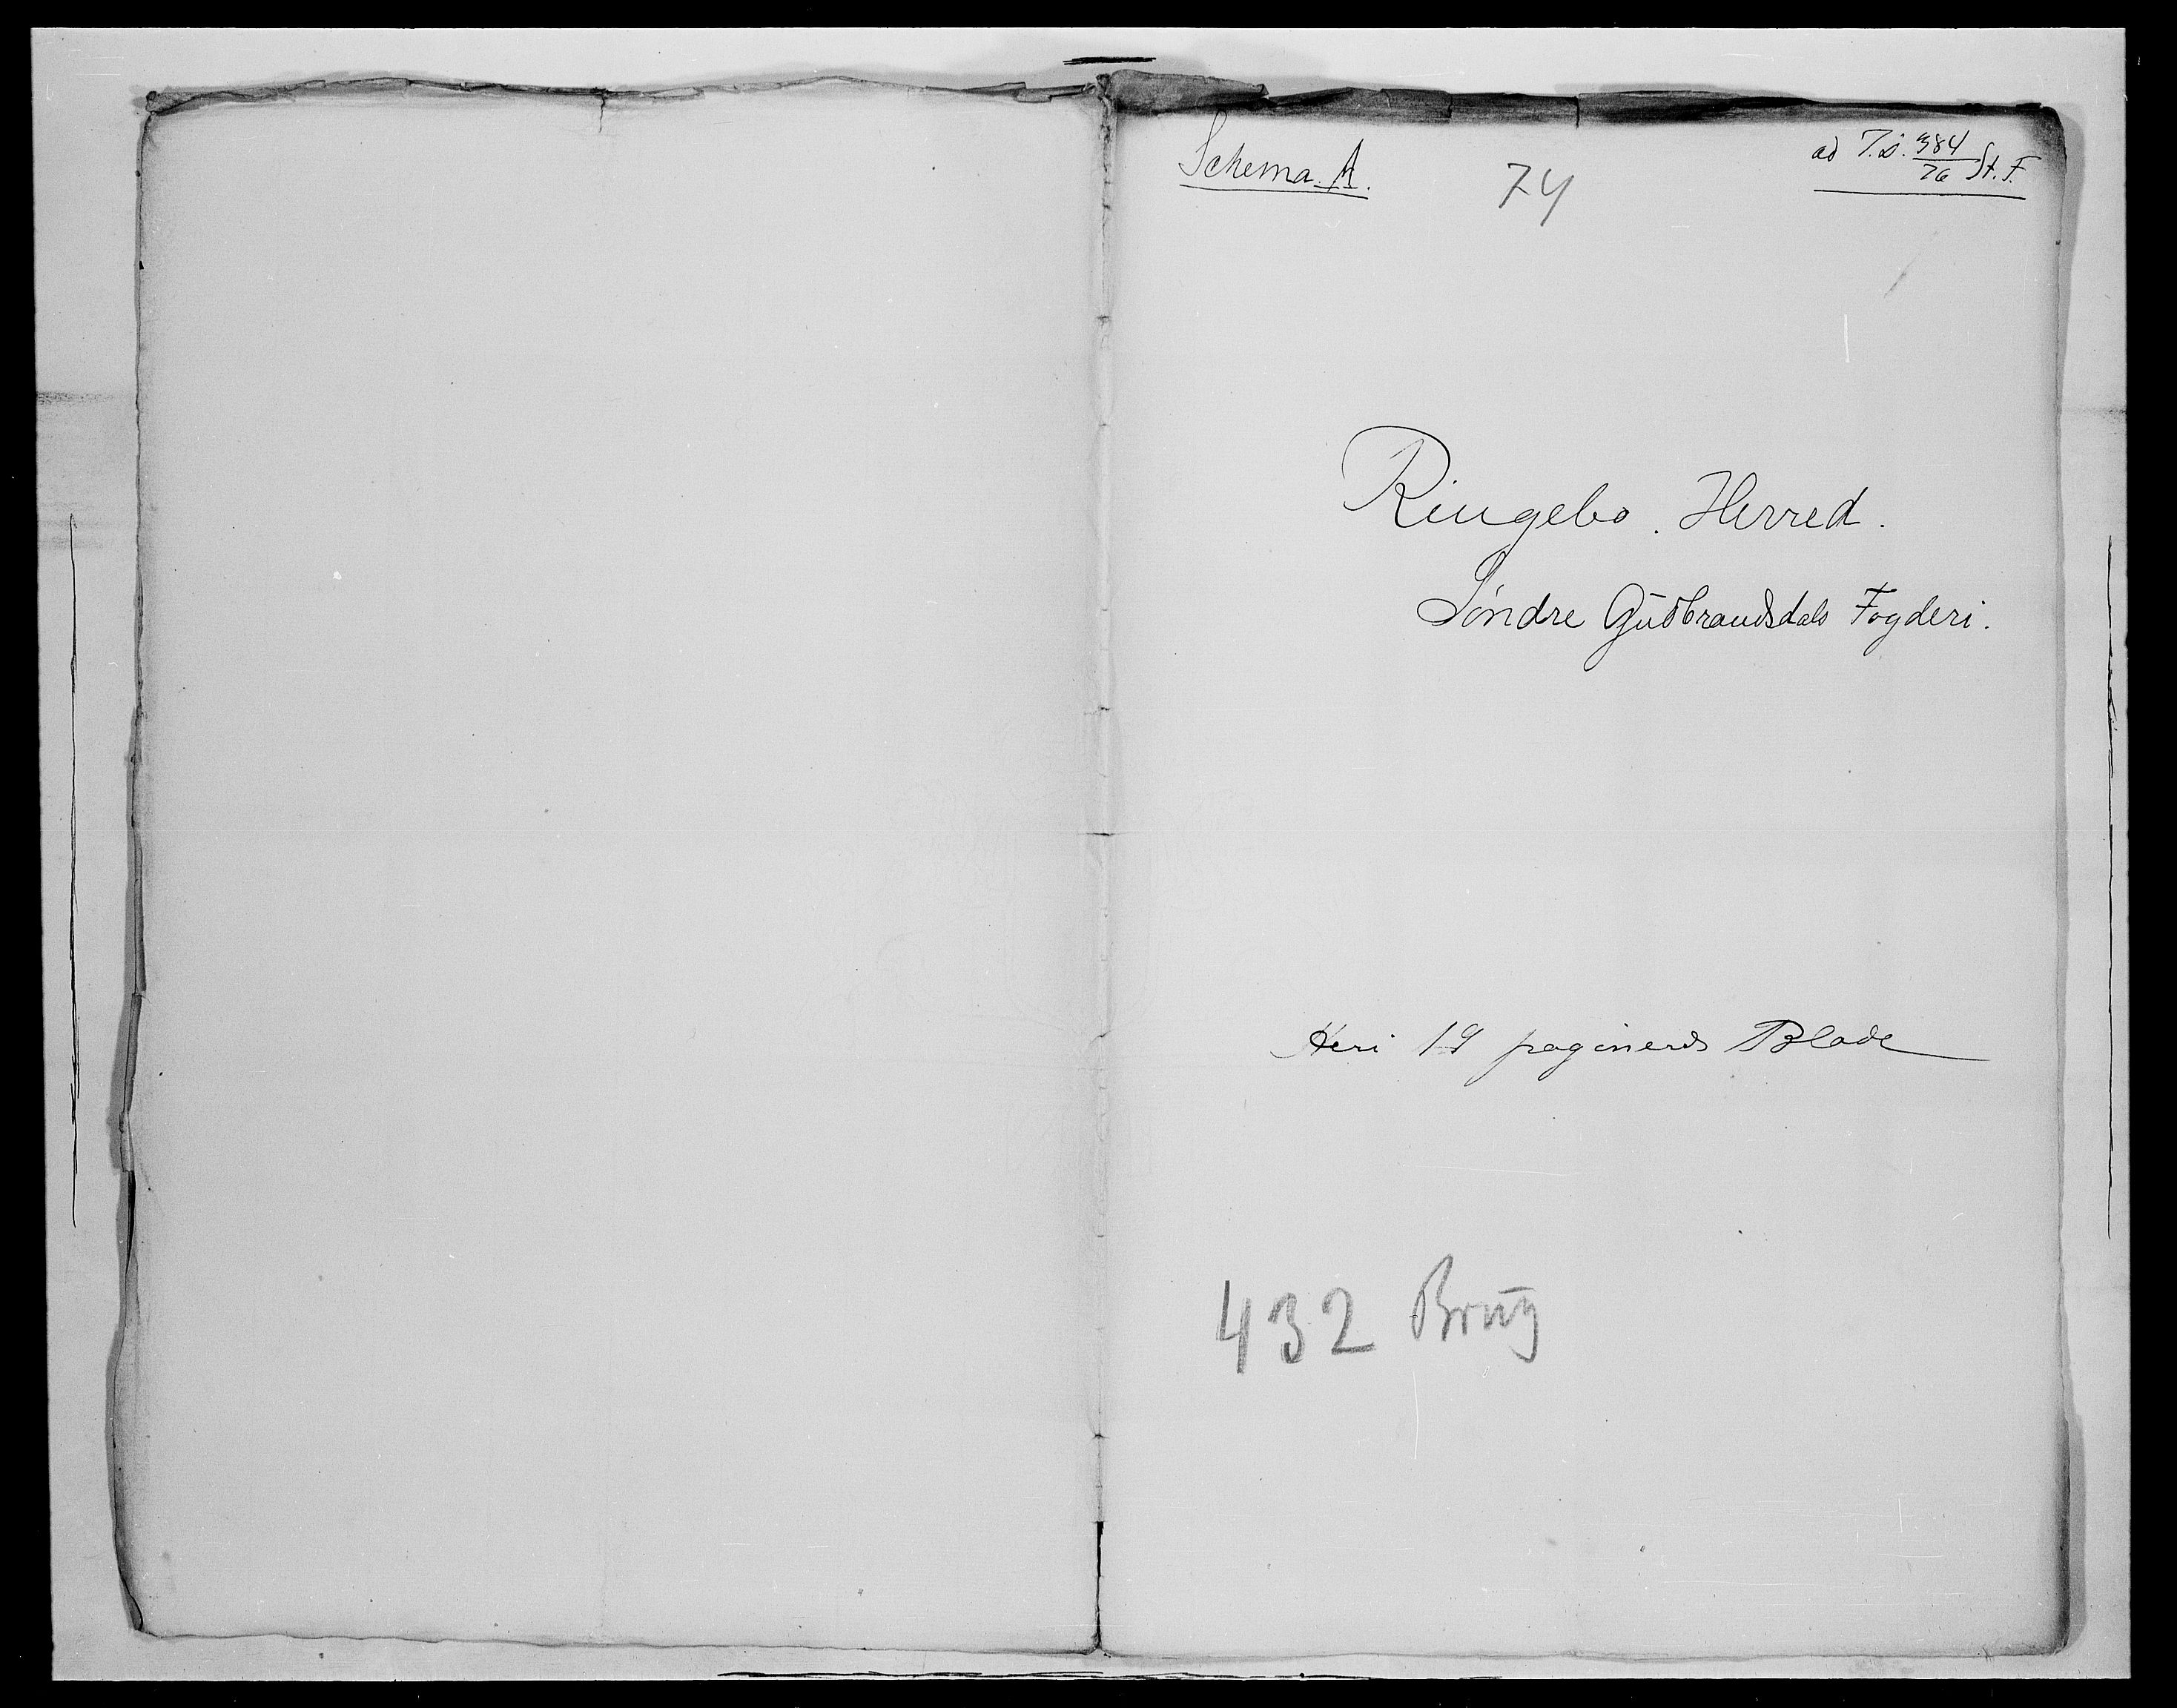 Schema A.
74
ad T.D. 384/76 St. F.
Ringebo. Herred.
Søndre Gudbrandsdals Fogderi.
Heri 19 paginerede Blade
432 Brug